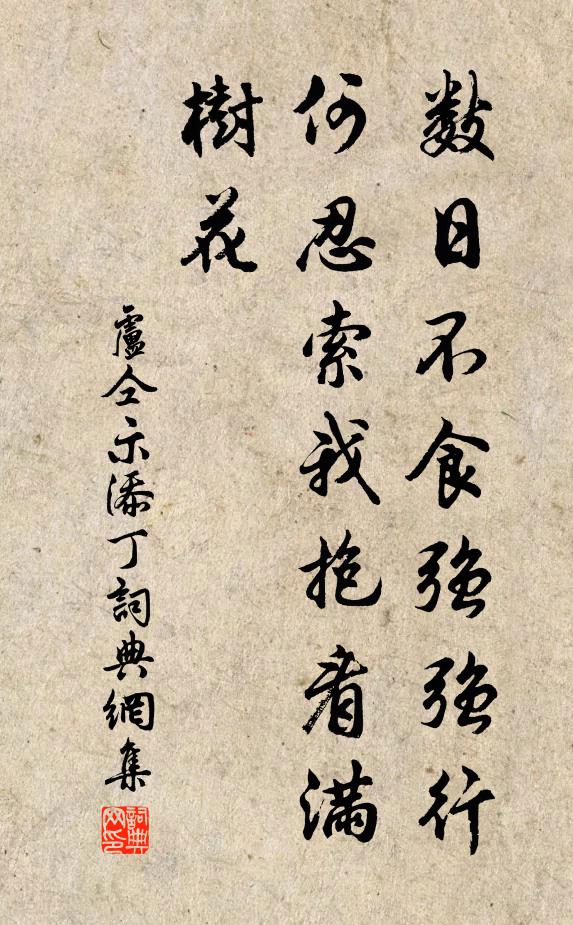 數日不食強強行
何忍索我抱看滿
樹花
盧仝示添丁詞典網集
詞典網印